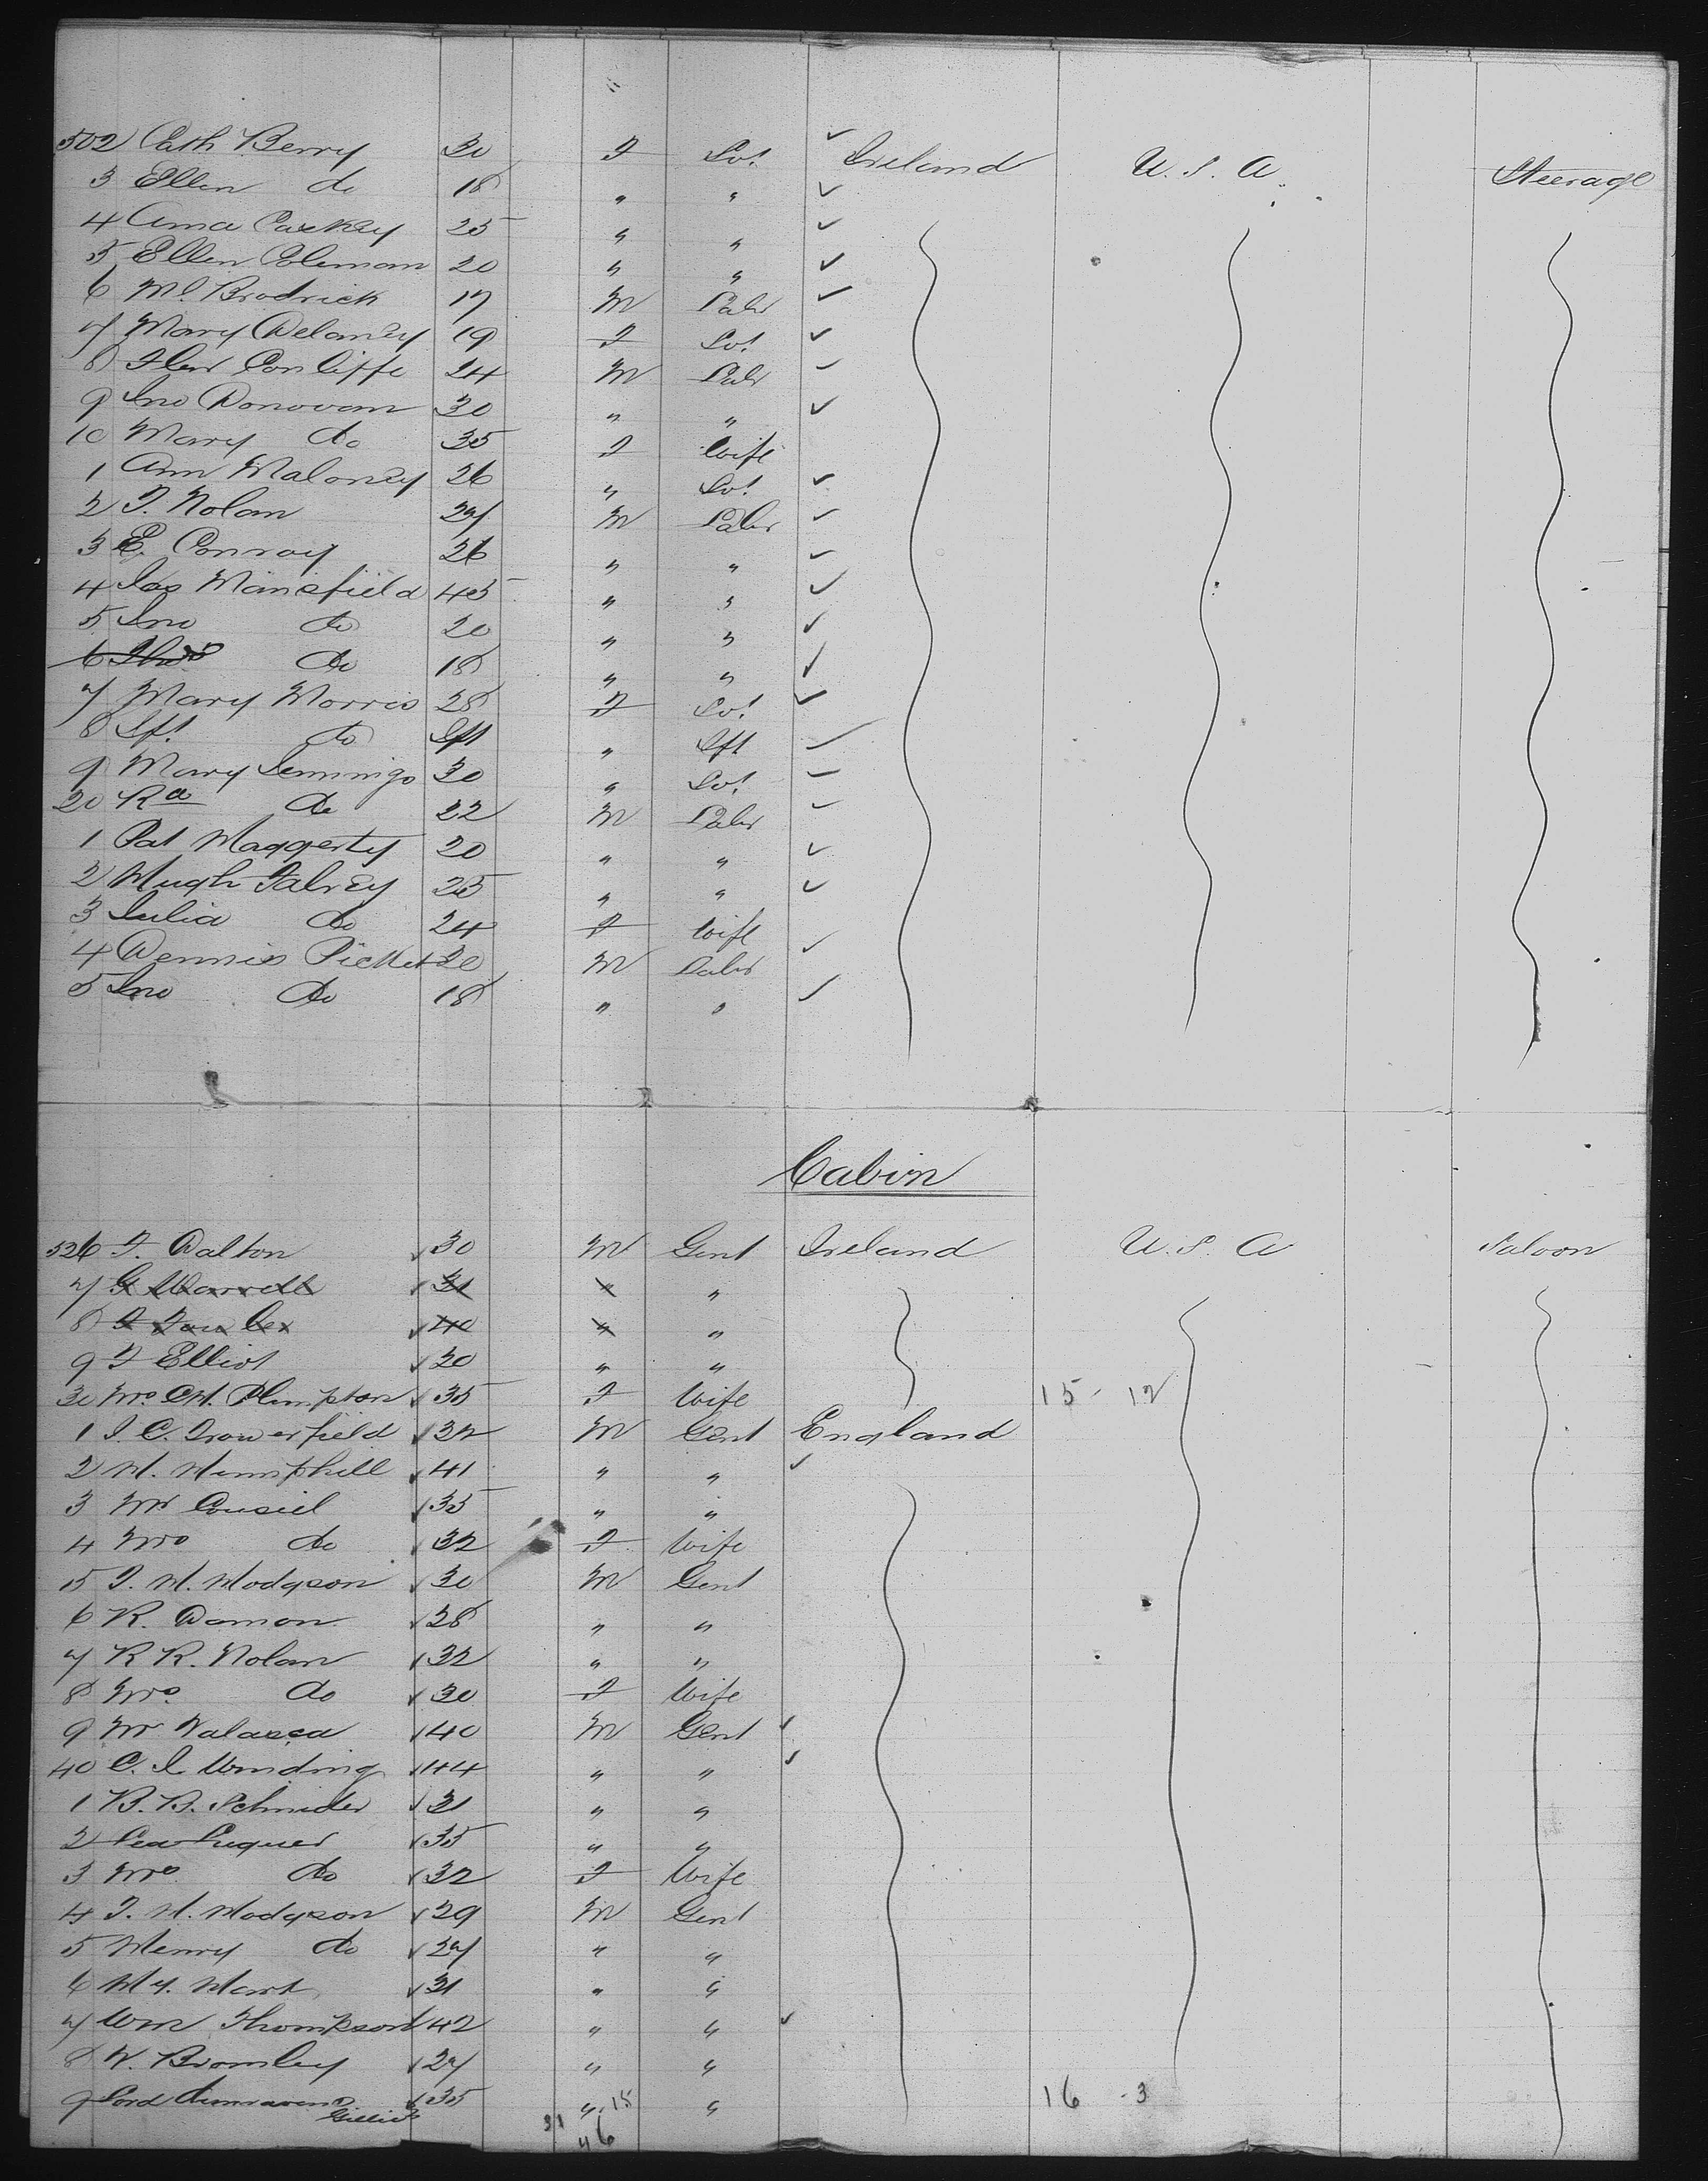 502 Cath Berry 30 F Svt Ireland U.S.A. Steerage
3 Ellen do 18 " "
4 Anna 25 " "
5 Ellen Coleman 20 " "
6 Ml Brodrick 17 M Labr
7 Mary Delaney 19 F Svt
8 24 M Labr
9 Jno Donovan 30 " "
10 Mary do 35 F Wife
1 Ann Maloney 26 " Svt
2 T. Nolan 27 M Labr
3 E. Conroy 26 " "
4 Jas Mansfield 45 " "
5 Jno do 20 " "
6 Thos do 18 " "
7 Mary Morris 28 F Svt
8 Ift do Ift " Ift
9 Mary Jennings 30 " Svt
20 Rd do 22 M Labr
1 Pat Haggerty 20 " "
2 Hugh Falvey 25 " "
3 Julia do 24 F Wife
4 Dennis Picket 20 M Labr
5 Jno do 18 " "
Cabin
526 F. Dalton 30 M Gent Ireland U.S.A Saloon
7 G 31 " "
8 40 " "
9 F Elliot 30 " "
30 Mrs C.H. Plimpton 35 F Wife 15 - 12
1 J.C. 32 M Gent England
2 H. Hemphill 41 " "
3 Mr 35 " "
4 Mrs do 32 F Wife
5 T. H. Hodgson 30 M Gent
6 R. Damon 28 " "
7 R R. Nolan 32 " "
8 Mrs. do 30 F Wife
9 Mr 40 M Gent
40 C. J. 44 " "
1 B. B. Schnider 31 " "
2 35 " "
3 Mrs do 32 F Wife
4 T. H. Hodgson 29 M Gent
5 Henry do 27 " "
6 Hy. Hart 31 " "
7 Wm Thompson 42 " "
8 W. Bromley 27 " "
9 Lord Dunraven 35 " 15 " 16 - 3
31 46